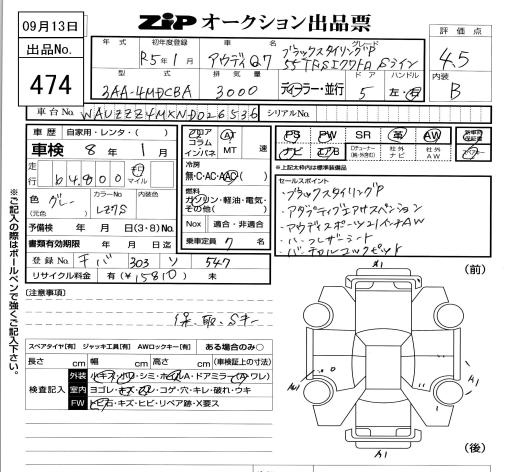 09月13日
出品No.
474
ZIP オークション出品票
年式 初年度登録 車名 グレード 評価点
R5年1月 アウディQ7 ブラックスタイリングP
55TFSIクワトロ Sライン
4.5
型式 排気量 ドア ハンドル 内装
3AA-4MDCBA 3000 ディーラー・並行 5 左・右 B
車台No. WAUZZZ4MXND026536 シリアルNo.
車歴 自家用・レンタ・( )
車検 8年1月
走行 64800 km マイル
色 グレー カラーNo LZ7S 内装色
(元色)
予備検 年 月 日(3・8)No.
書類有効期限 年 月 日迄
登録No. チバ 303 ソ 547
リサイクル料金 有(¥15810) 未
フロア コラム インパネ AT MT 速
冷房
無・C・AC・AAC・( )
燃料
ガソリン・軽油・電気・その他( )
Nox 適合・非適合
乗車定員 7 名
PS PW SR 革 AW 新車時保証書
ナビ エアB 社外ナビ 社外AW
※上記太枠内は標準装備品
セールスポイント
・ブラックスタイリングP
・アダプティブエアサスペンション
・アウディスポーツ21インチAW
・パークレザーシート
・バーチャルコックピット
[注意事項]
保、取、Sキー
スペアタイヤ[有] ジャッキ工具[有] AWロックキー[有] ある場合のみ○
長さ cm 幅 cm 高さ cm (車検証上の寸法)
検査記入
外装 ルキズ・小ワ・シミ・ホイールA・ドアミラー(A・ワレ)
室内 ヨゴレ・キズ・スレ・コゲ・穴・キレ・破れ・ウキ
FW トビ石・キズ・ヒビ・リペア跡・X要ス
(前)
(後)
A1
A1
A1
※ご記入の際はボールペンで強くご記入下さい。